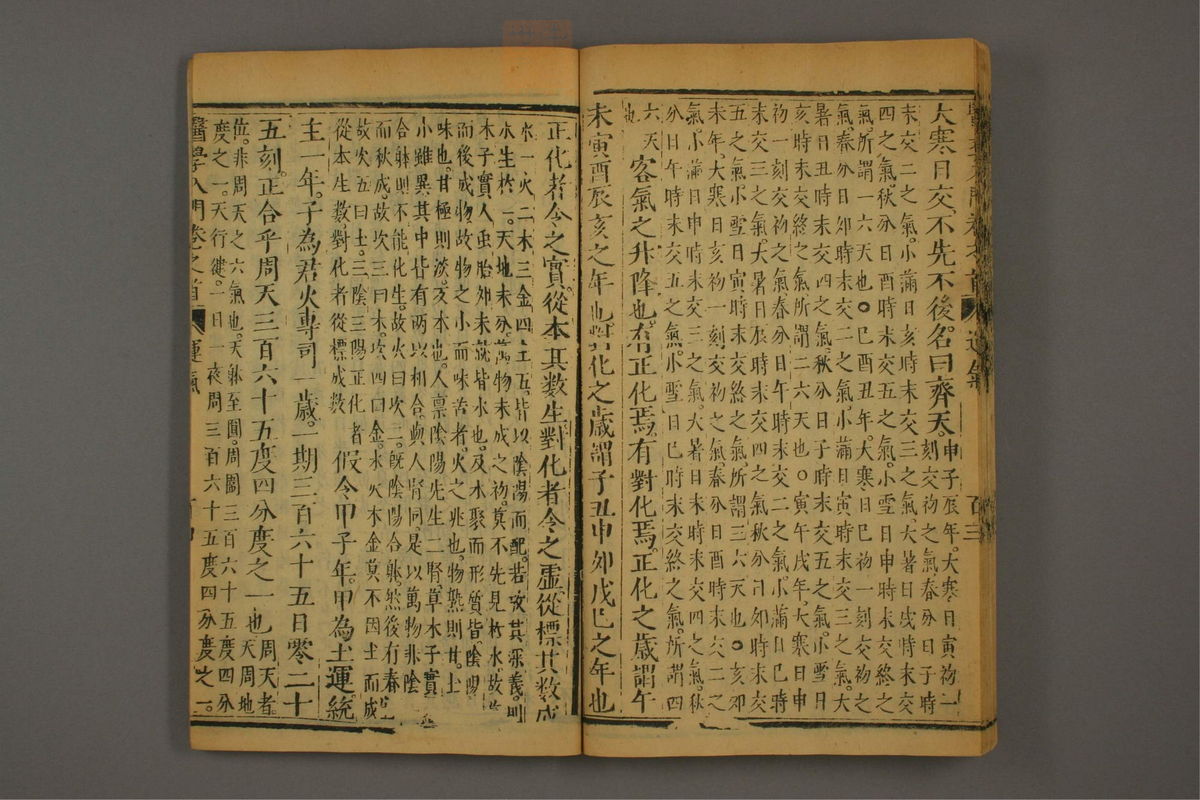 醫學入門卷之首 運氣 百三
大寒日交不先不後名曰齊天申子辰年大寒日寅初一
刻交初之氣春分日子時
末交二之氣小滿日亥時末交三之氣大暑日戌時末交
四之氣秋分日酉時末交五之氣小雪日申時末交終之
氣所謂一六天也○巳酉丑年大寒日巳初一刻交初之
氣春分日卯時末交二之氣小滿日寅時末交三之氣大
暑日丑時末交四之氣秋分日子時末交五之氣小雪日
亥時末交終之氣所謂二六天也○寅午戌年大寒日申
初一刻交初之氣春分日午時末交二之氣小滿日巳時
末交三之氣大暑日辰時末交四之氣秋分日卯時末交
五之氣小雪日寅時末交終之氣所謂三六天也○亥卯
未年大寒日亥初一刻交初之氣春分日酉時末交二之
氣小滿日申時末交三之氣大暑日未時末交四之氣秋
分日午時末交五之氣小雪日巳時末交終之氣所謂四
六天也客氣之升降也有正化焉有對化焉正化之歲謂午
未寅酉辰亥之年也對化之歲謂子丑申卯戌巳之年也
正化者令之實從本其數生對化者令之虛從標其數成
水一火二木三金四土五皆以陰陽而配若攷其深義則
水生於一天地未分萬物未成之初莫不先見於水故
木子實人虫胎卵未就皆水也及水聚而形質皆陰陽
而後成物故物之小而味苦者火之兆也物熟則甘土
味也甘極則淡反本也人禀陰陽先生二腎草木子實
小雖異其中皆有兩以相合與人腎同是以萬物非陰
合躰則不能化生故火曰次二旣陰陽合躰然後有春
而秋成故次三曰木次四曰金水火木金莫不因土而成
故次五曰土三陰三陽正化者
從本生數對化者從標成數
假令甲子年甲為土運統
主一年子為君火專司一歲一期三百六十五日零二十
五刻正合乎周天三百六十五度四分度之一也周天者
位非周天之六氣也天躰至圓周圍三百六十五度四分
度之一天行健一日一夜周三百六十五度四分度之一
醫學入門卷之首 運氣